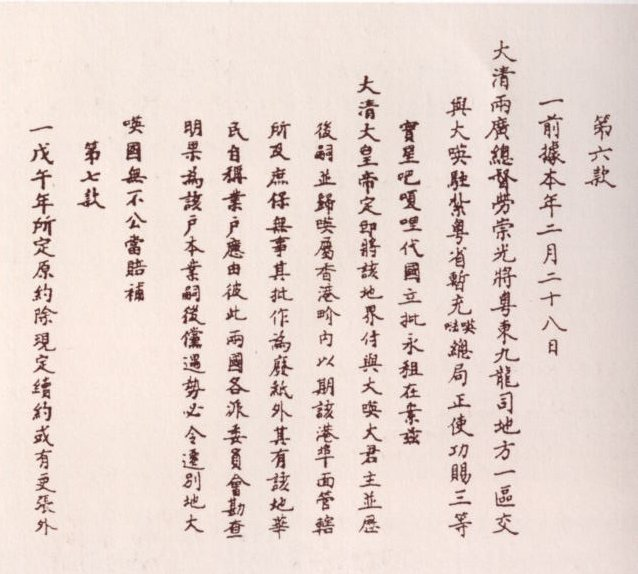 第六款
一前據本年二月二十八日
大清兩廣總督勞崇光將粵東九龍司地方一區交
與大暎駐紮粵省暫充暎總局正使功賜三等
寶星吧嗄哩代國立批永租在案茲
大清大皇帝定即將該地界付與大暎大君主並歷
後嗣並歸暎屬香港界內以期該港埠面管轄
所及庶保無事其批作為廢紙外其有該地華
民自稱業戶應由彼此兩國各派委員會勘查
明果為該戶本業嗣後儻遇勢必令遷別地大
暎國無不公當賠補
第七款
一戊午年所定原約除現定續約或有更張外